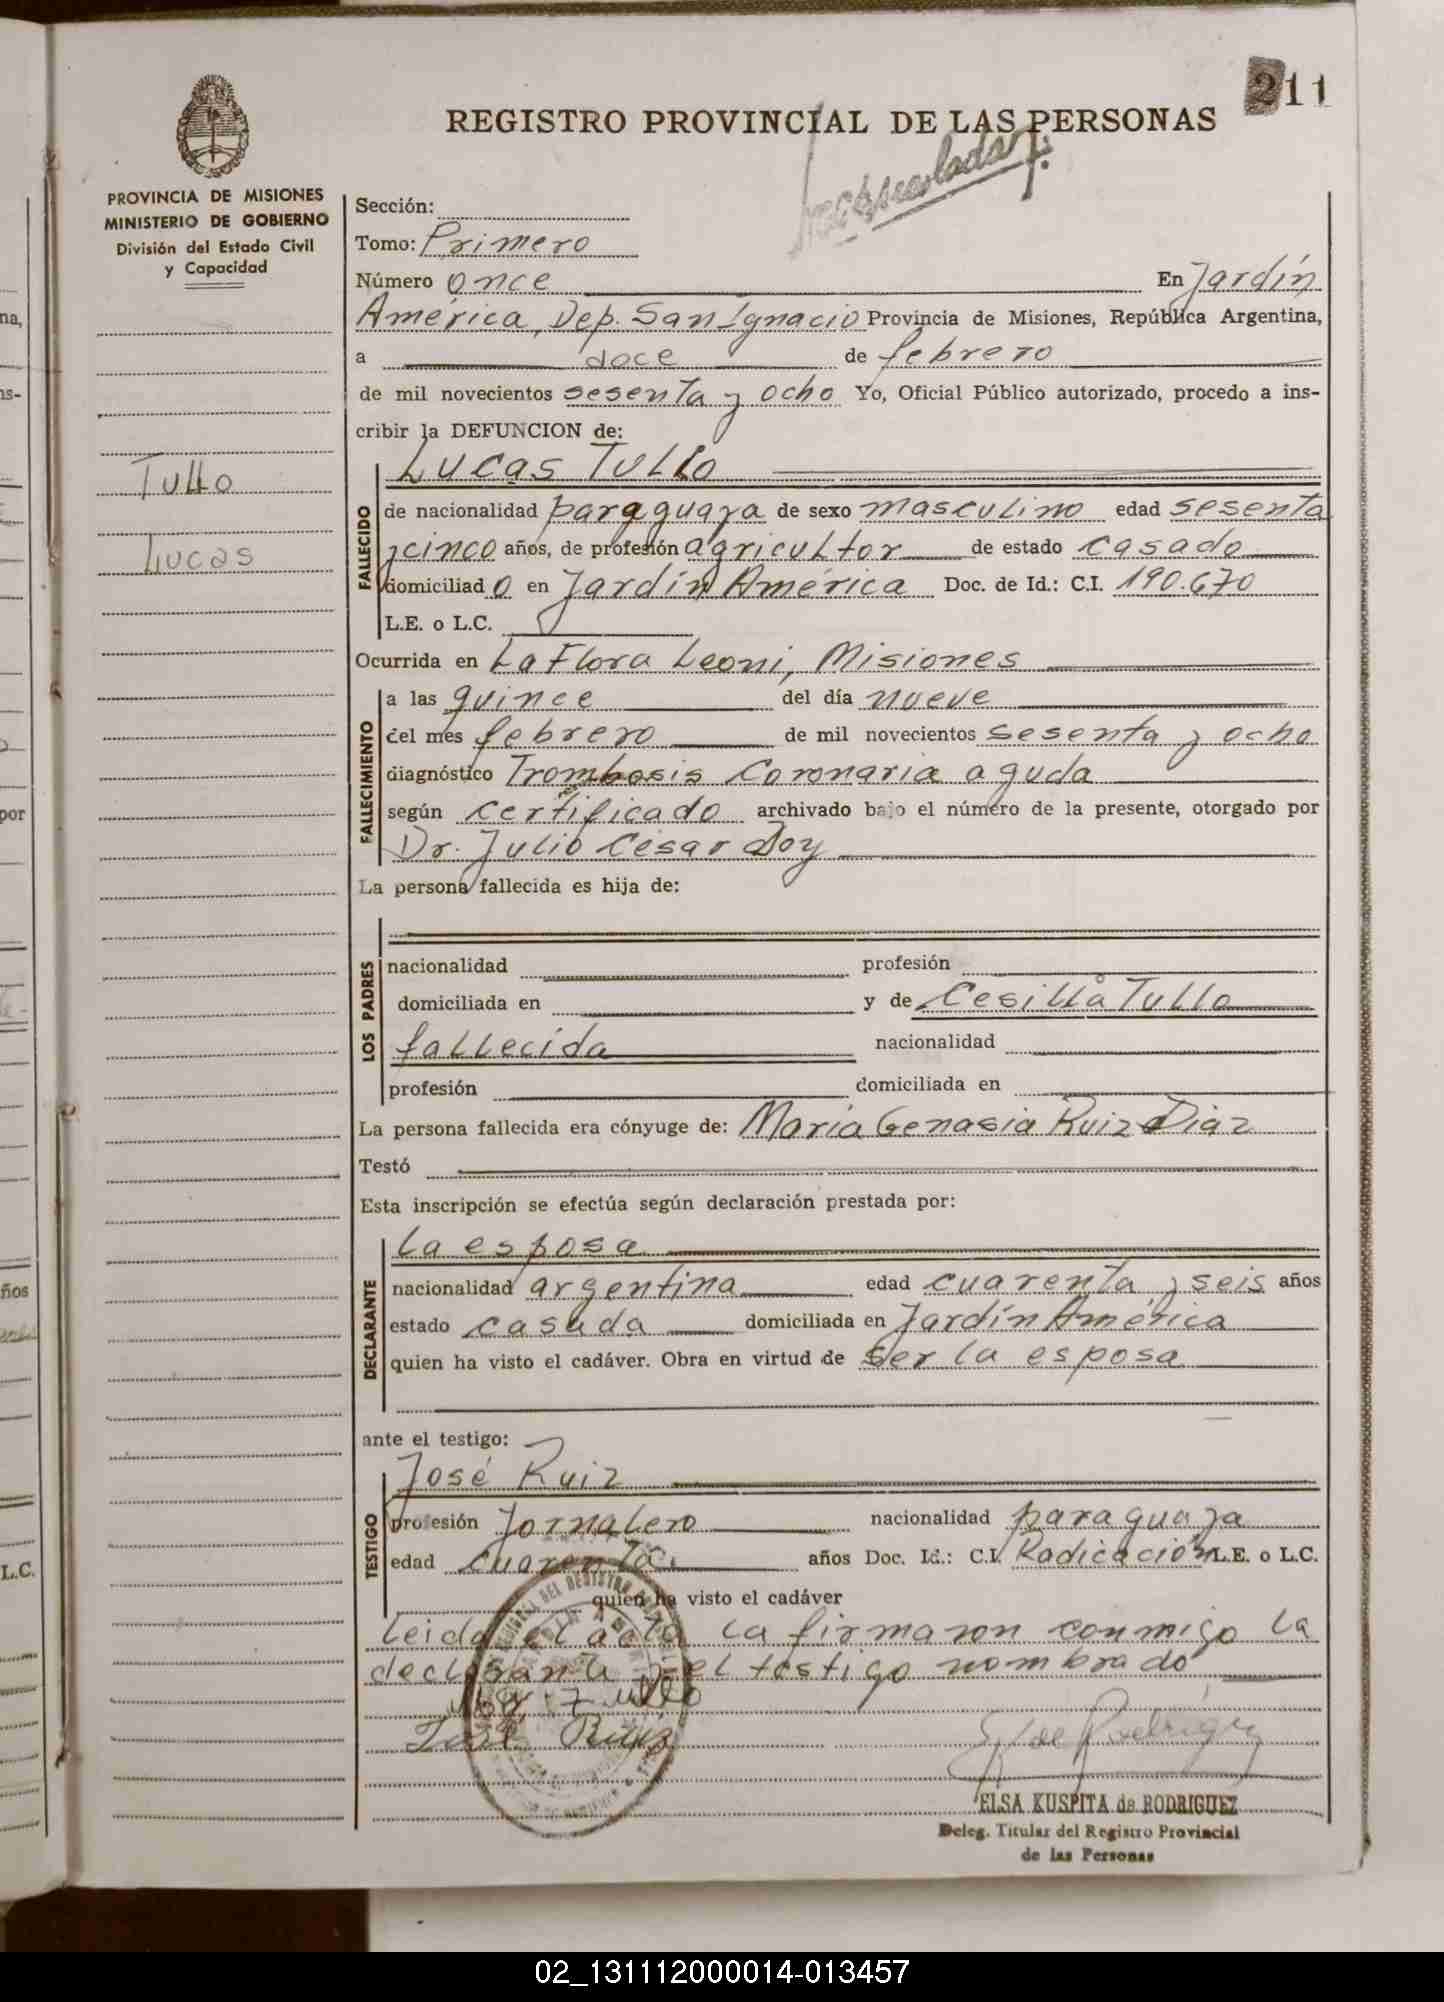 211
REGISTRO PROVINCIAL DE LAS PERSONAS
PROVINCIA DE MISIONES
MINISTERIO DE GOBIERNO
División del Estado Civil
y Capacidad
Tullo
Lucas
Sección:
Tomo: Primero
Número once En Jardín
América, Dep. San Ignacio Provincia de Misiones, República Argentina,
a doce de febrero
de mil novecientos sesenta y ocho Yo, Oficial Público autorizado, procedo a ins-
cribir la DEFUNCION de:
Lucas Tullo
FALLECIDO
de nacionalidad paraguaya de sexo masculino edad sesenta
y cinco años, de profesión agricultor de estado casado
domiciliado en Jardín América Doc. de Id.: C.I. 190.670
L.E. o L.C.
Ocurrida en La Flora Leoni, Misiones
FALLECIMIENTO
a las quince del día nueve
del mes febrero de mil novecientos sesenta y ocho
diagnóstico Trombosis Coronaria aguda
según certificado archivado bajo el número de la presente, otorgado por
Dr. Julio César
La persona fallecida es hija de:
LOS PADRES
nacionalidad profesión
domiciliada en y de Cesilia Tullo
fallecida nacionalidad
profesión domiciliada en
La persona fallecida era cónyuge de: María Genasia Ruiz Diaz
Testó
Esta inscripción se efectúa según declaración prestada por:
la esposa
DECLARANTE
nacionalidad argentina edad cuarenta y seis años
estado casada domiciliada en Jardín América
quien ha visto el cadáver. Obra en virtud de ser la esposa
ante el testigo:
José Ruiz
TESTIGO
profesión Jornalero nacionalidad paraguaya
edad cuarenta años Doc. Id.: C.I. Radicación L.E. o L.C.
quien ha visto el cadáver
Leida el acta la firmaron conmigo la
declarante y el testigo nombrado
José Ruiz
ELSA KUSPITA de RODRIGUEZ
Deleg. Titular del Registro Provincial
de las Personas
02_131112000014-013457